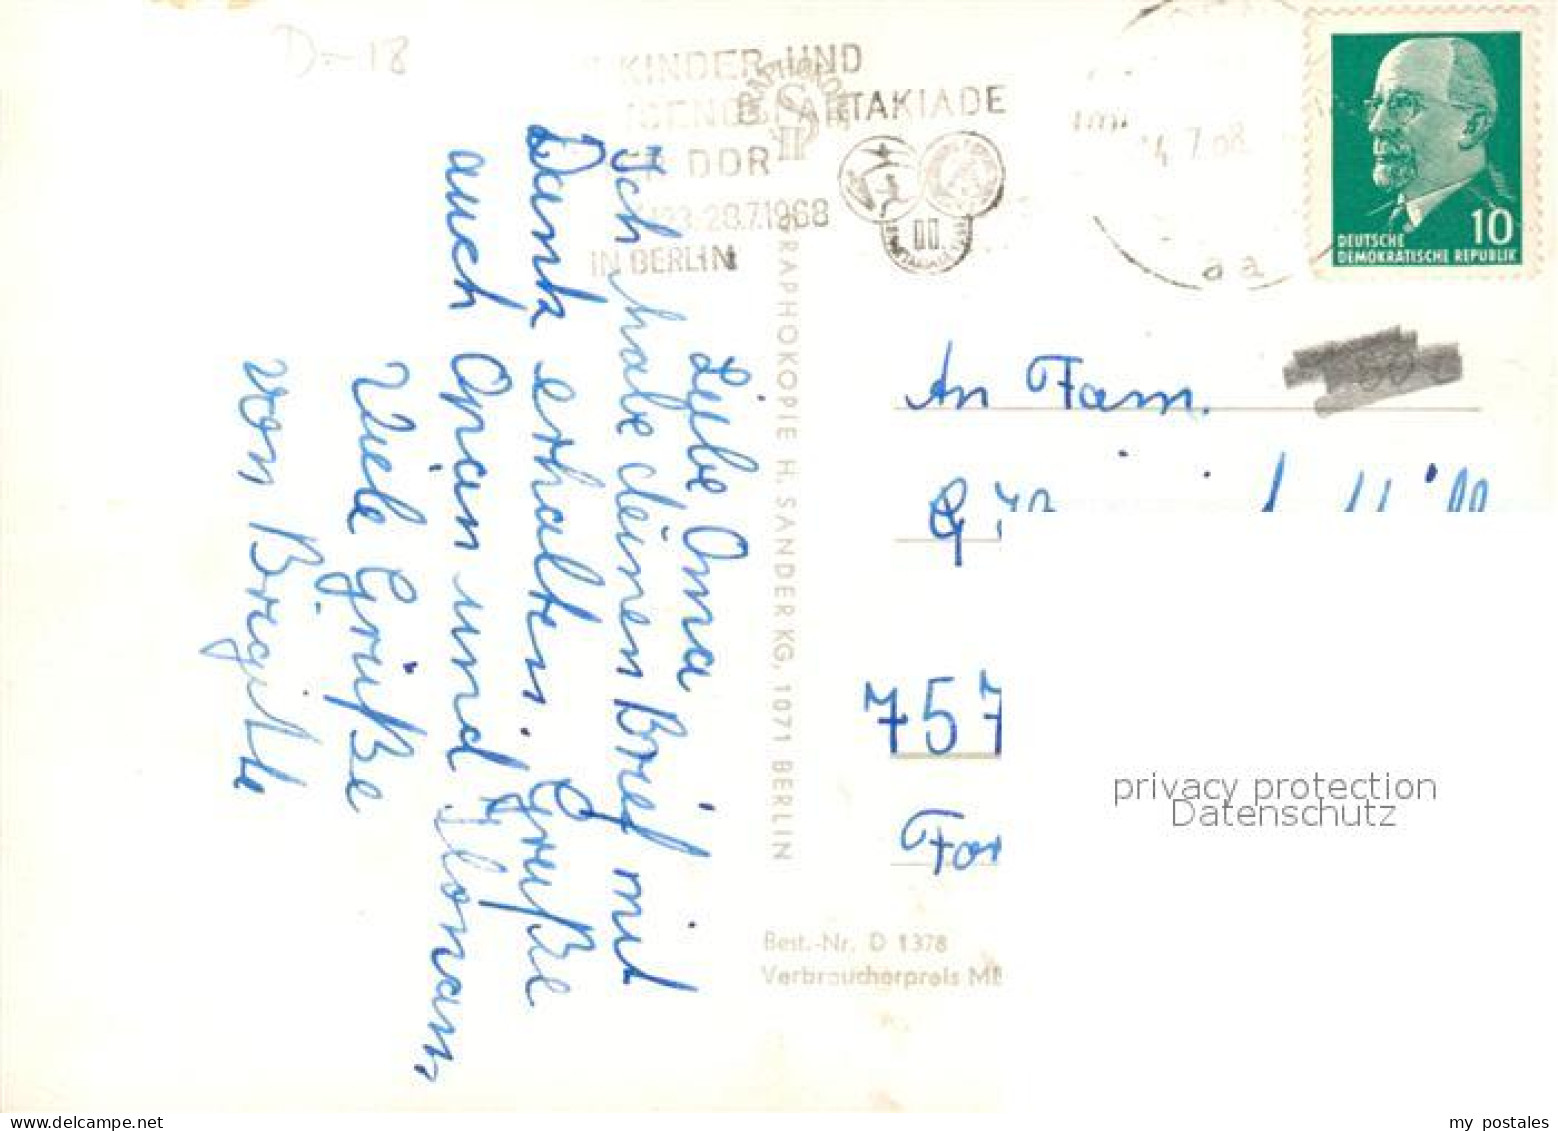 D-18
KINDER UND
JUGENDSPARTAKIADE
DER DDR
23.-28.7.1968
IN BERLIN
II
DEUTSCHE
DEMOKRATISCHE REPUBLIK
10
Liebe Oma
Ich habe deinen Brief mit
Dank erhalten. Grüße
auch Opian und
Viele Grüße
von Brigitte
GRAPHOKOPIE H. SANDER KG, 1071 BERLIN
An Fam.
757
Best.-Nr. D 1378
Verbraucherpreis
privacy protection
Datenschutz
my postales